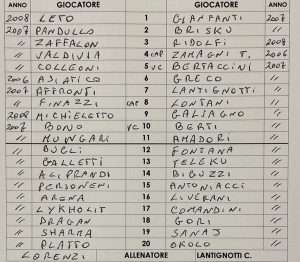 ANNO GIOCATORE GIOCATORE ANNO
2008 LETO 1 GIANFANTI 2007
2007 PANDULLO 2 BRISKU "
" ZAFFALON 3 RIDOLFI 2008
" VALDIVIA 4 CAP ZAMAGNI T. 2006
" COLLEONI 5 VC BERTACCINI 2007
2006 ASIATICO 6 GRECO "
2007 AFFRONTI 7 LANTIGNOTTI "
" FINAZZI CAP 8 LONTANI "
2008 MICHIELETTO 9 GALSAGNO "
2007 BONO VC 10 BERTI "
" MUNGARI 11 AMADORI "
" BUGLI 12 FONTANA "
" GALLETTI 13 TELEKU "
" ALIPRANDI 14 BIGUZZI "
" PERSONENI 15 ANTONIACCI "
" ARENA 16 LIVERANI "
" LYKHOLIT 17 COMANDINI "
" DRAGAN 18 GORI "
" SHARMA 19 SANAJ "
" PLATTO 20 OKOLO "
LORENZI ALLENATORE LANTIGNOTTI C.